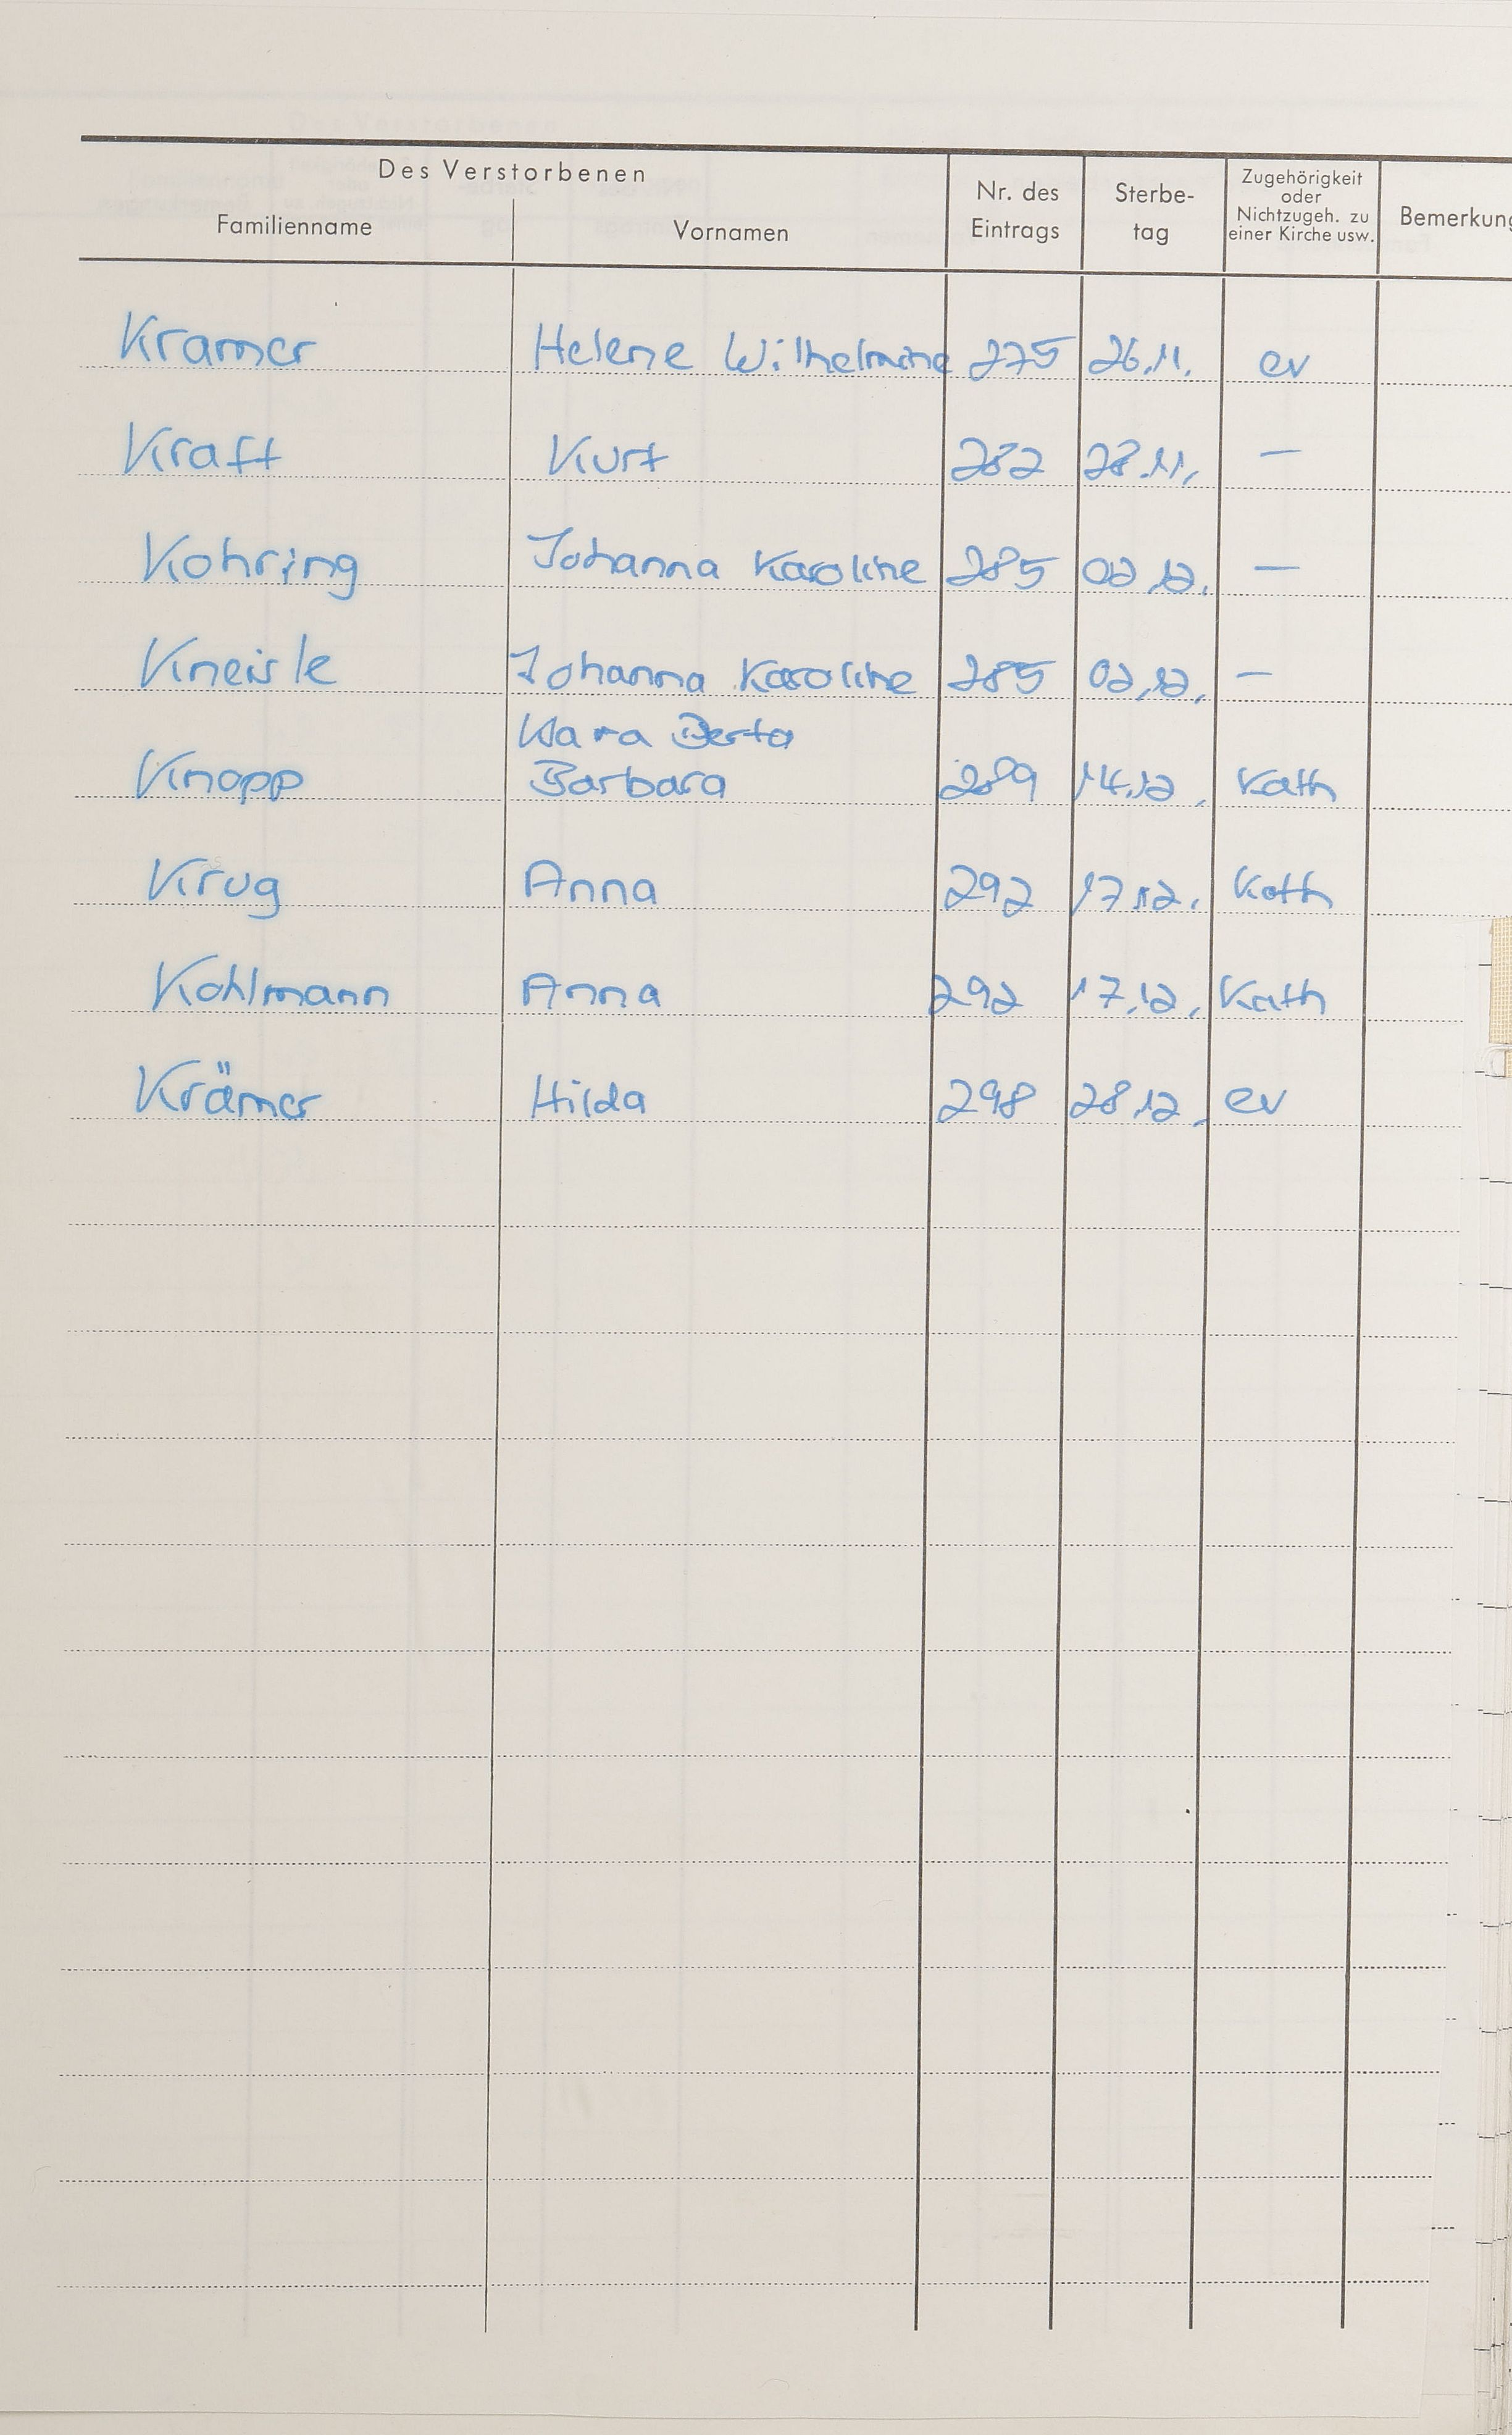 Des Verstorbenen
Familienname Vornamen Nr. des Eintrags Sterbe- tag Zugehörigkeit oder Nichtzugeh. zu einer Kirche usw. Bemerkung
Kramer Helene Wilhelmine 275 26.11. ev
Kraft Kurt 282 28.11. —
Kohring Johanna Karoline 285 02.12. —
Kneisle Johanna Karoline 285 02.12. —
Klara Berta
Knopp Barbara 289 14.12. Kath
Krug Anna 292 17.12. Kath
Kohlmann Anna 292 17.12. Kath
Krämer Hilda 298 28.12. ev